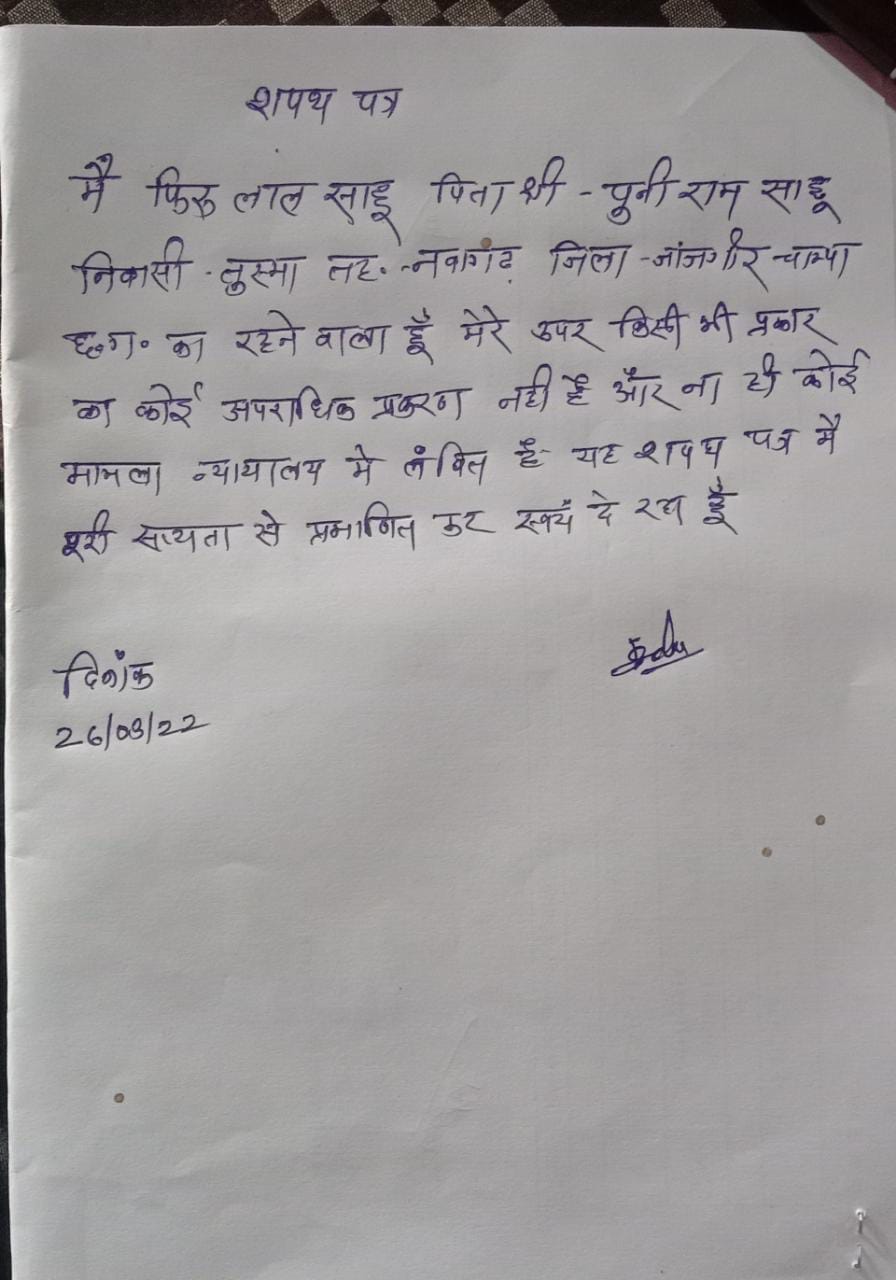 शपथ पत्र
मै फिरू लाल साहू पिता श्री - पुनी राम साहू
निवासी - तुस्मा तह. - नवागढ़ जिला - जांजगीर - चाम्पा
छ.ग. का रहने वाला हूँ मेरे उपर किसी भी प्रकार
का कोई अपराधिक प्रकरण नही है और ना ही कोई
मामला न्यायालय मे लंबित है यह शपथ पत्र मै
पूरी सत्यता से प्रमाणित कर स्वयं दे रहा हूँ
दिनांक
26/03/22